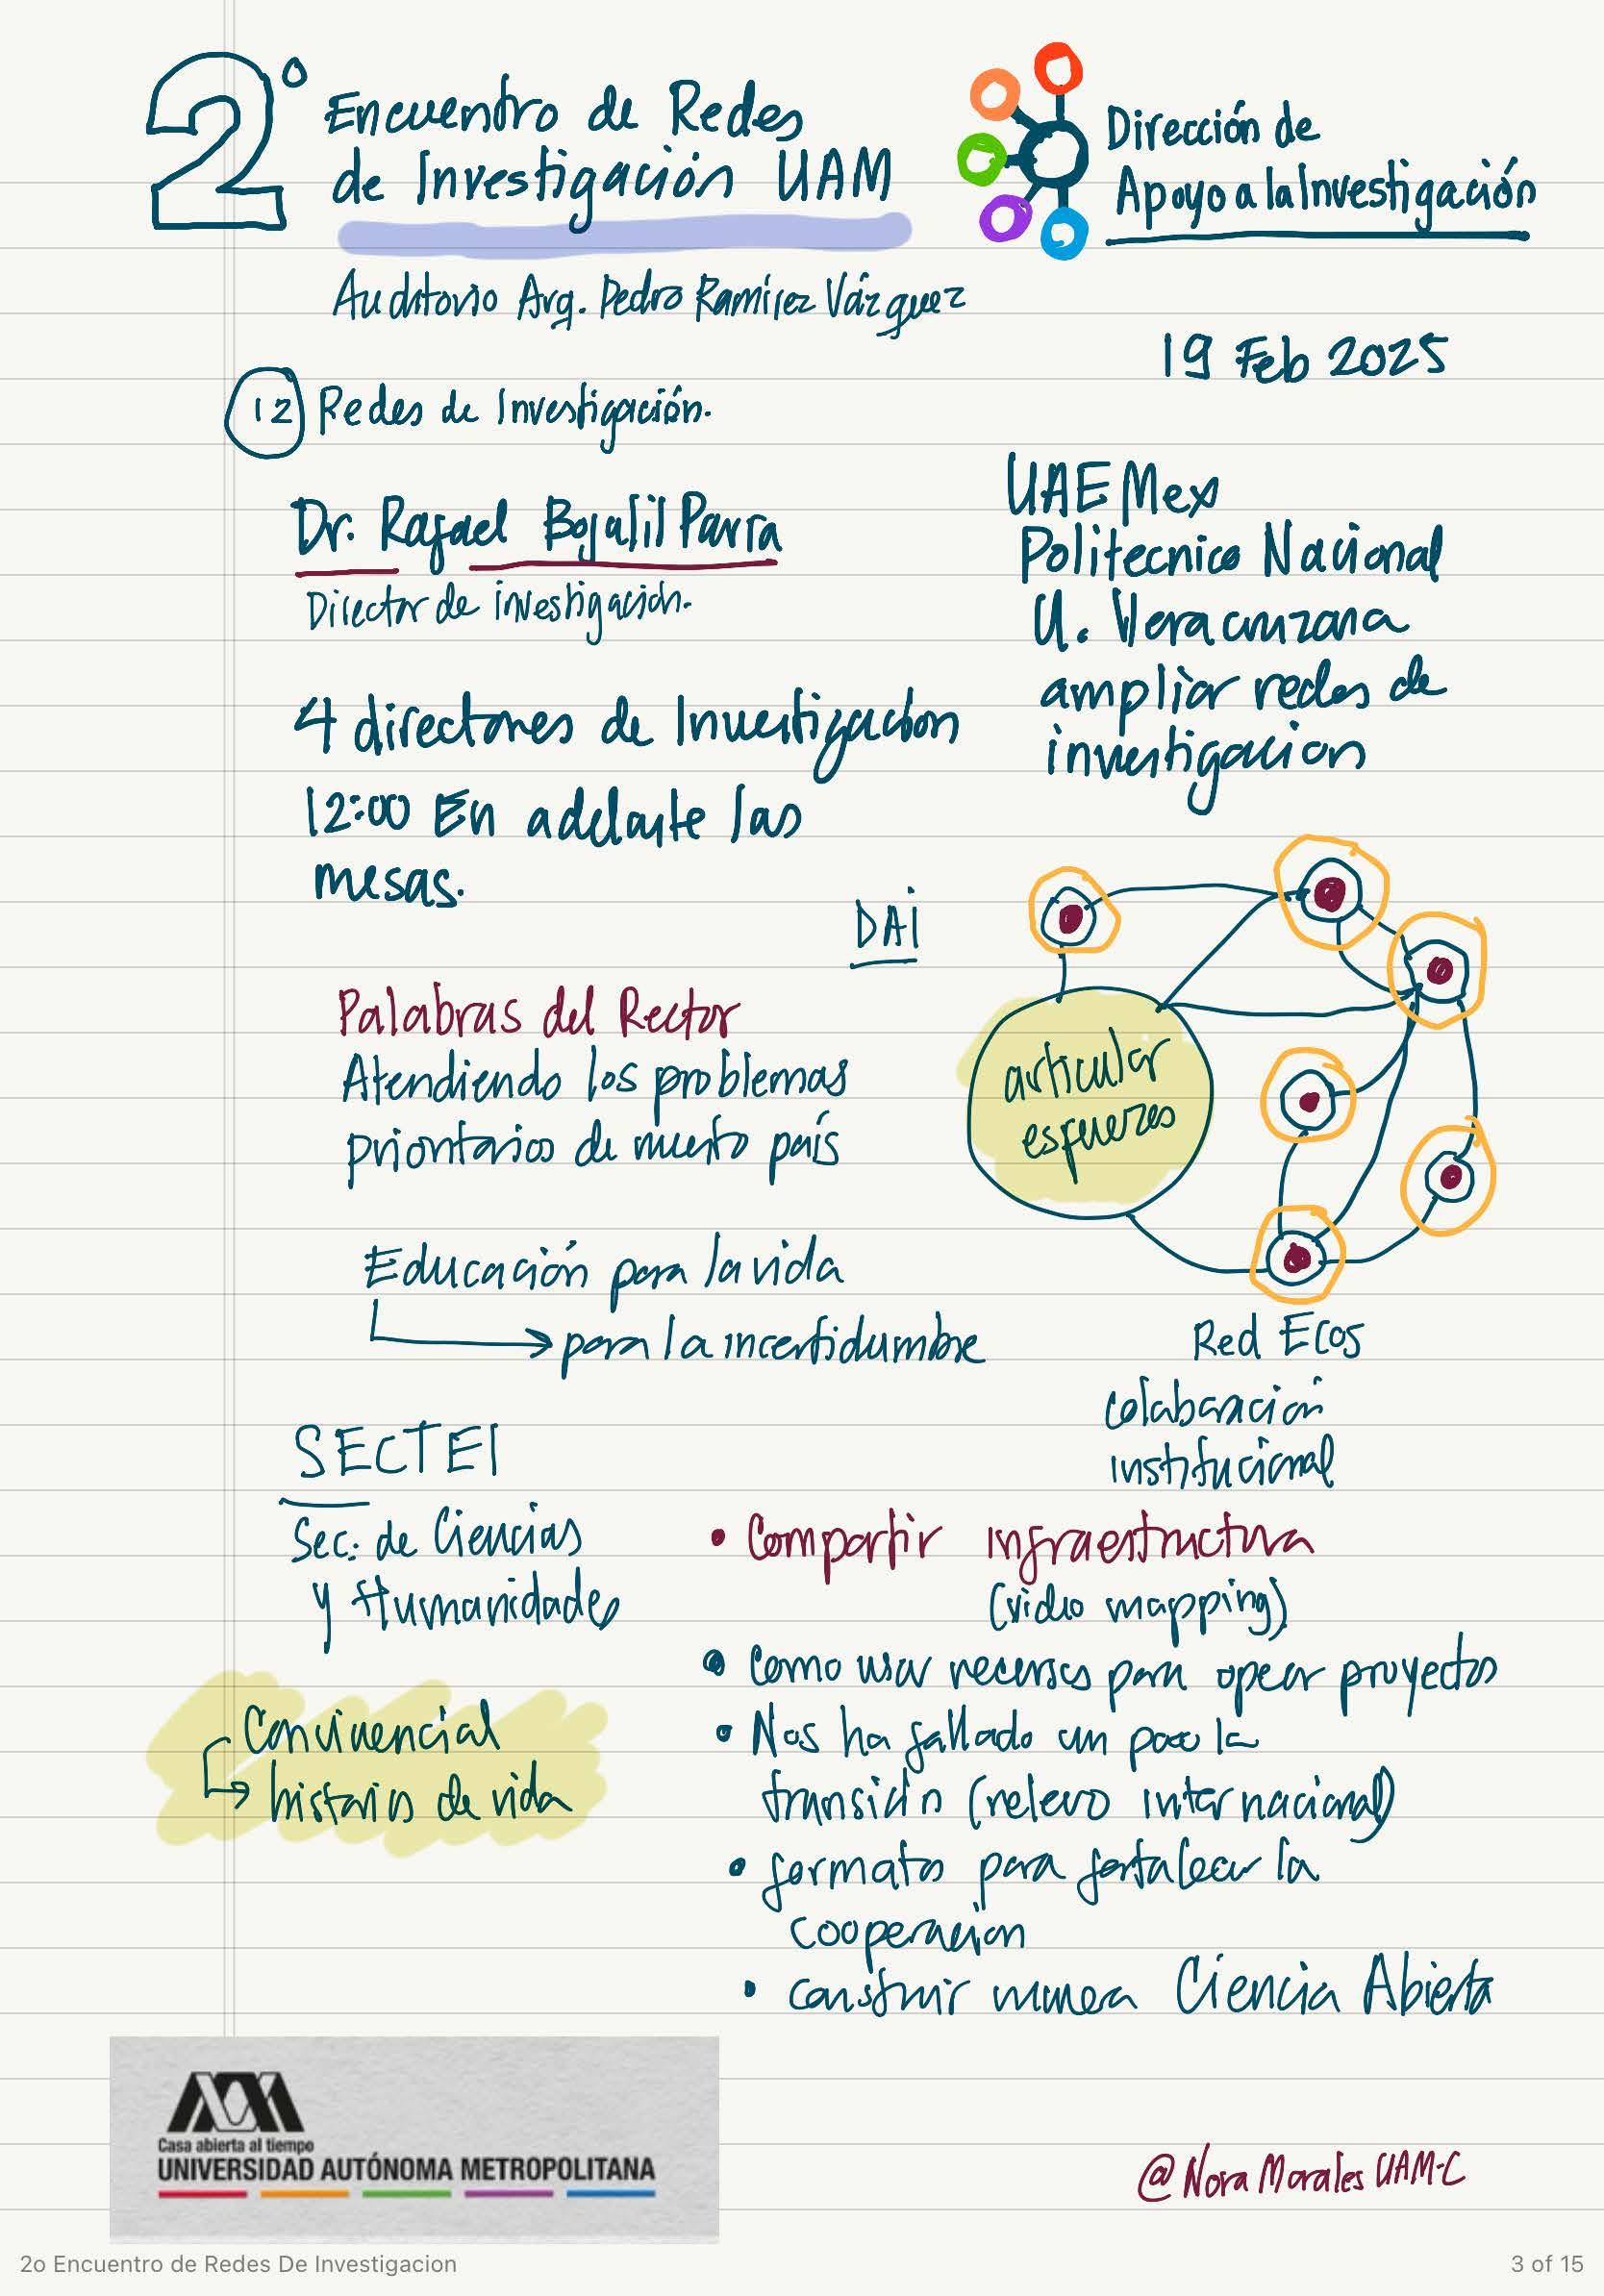 2° Encuentro de Redes
de Investigación UAM
Dirección de
Apoyo a la Investigación
Auditorio Arq. Pedro Ramírez Vázquez
19 Feb 2025
12 Redes de Investigación.
Dr. Rafael Bojalil Parra
Director de investigación.
UAEMex
Politecnico Nacional
U. Veracruzana
ampliar redes de
investigacion
4 directores de Investigacion
12:00 En adelante las
mesas.
DAI
articular
esfuerzos
Palabras del Rector
Atendiendo los problemas
prioritarios de nuestro país
Educación para la vida
para la incertidumbre
Red Ecos
colaboración
institucional
SECTEI
Sec. de Ciencias
y Humanidades
• Compartir infraestructura
(video mapping)
• Como usar recursos para operar proyectos
• Nos ha fallado un poco la
transición (relevo internacional)
• formatos para fortalecer la
cooperacion
• construir nuestra Ciencia Abierta
Convivencial
historias de vida
Casa abierta al tiempo
UNIVERSIDAD AUTÓNOMA METROPOLITANA
@Nora Morales UAM-C
2o Encuentro de Redes De Investigacion
3 of 15